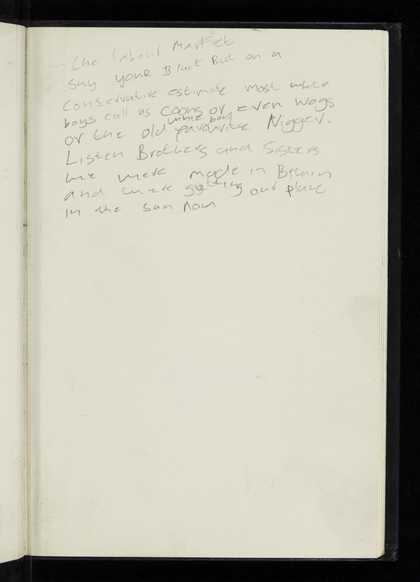 the labour Market
Say your Black But on a
Conservative estimate most white
boys call us coons or even wogs
white boy
or the old favourite Nigger.
Listen Brothers and Sisters
we were made in Britain
and were getting our place
in the sun now